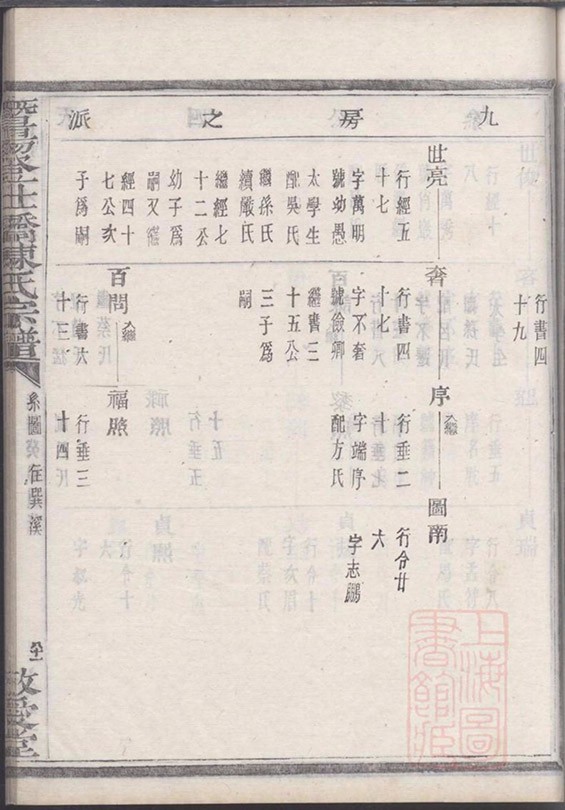 九房之派
行書四
十九
世亮
行經五
十七
字萬明
號幼愚
太學生
配吳氏
繼孫氏
續嚴氏
繼經七
十二公
幼子爲
嗣又繼
經四十
七公次
子爲嗣
奢
行書四
十七
字不奢
號儉卿
繼書三
十五公
三子爲
嗣
百問
入繼
行書六
十三
序
入繼
行垂二
十一
字端序
配方氏
福照
行垂三
十四
圖南
行合廿
六
字志鵬
陳氏宗譜
系圖
在巽溪
敬愛堂
上海圖
書館藏